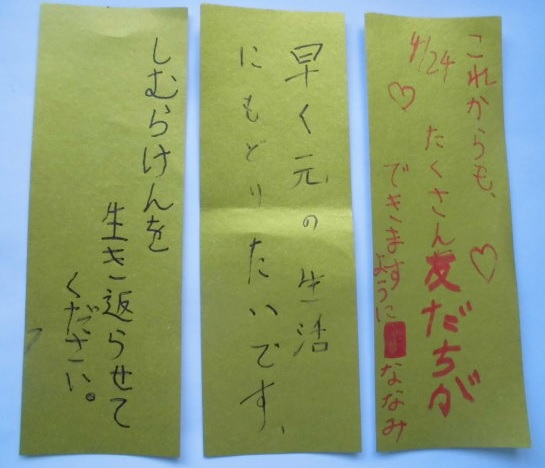 これからも、
4/24
たくさん友だちが
できますように ななみ
早く元の生活
にもどりたいです、
しむらけんを
生き返らせて
ください。